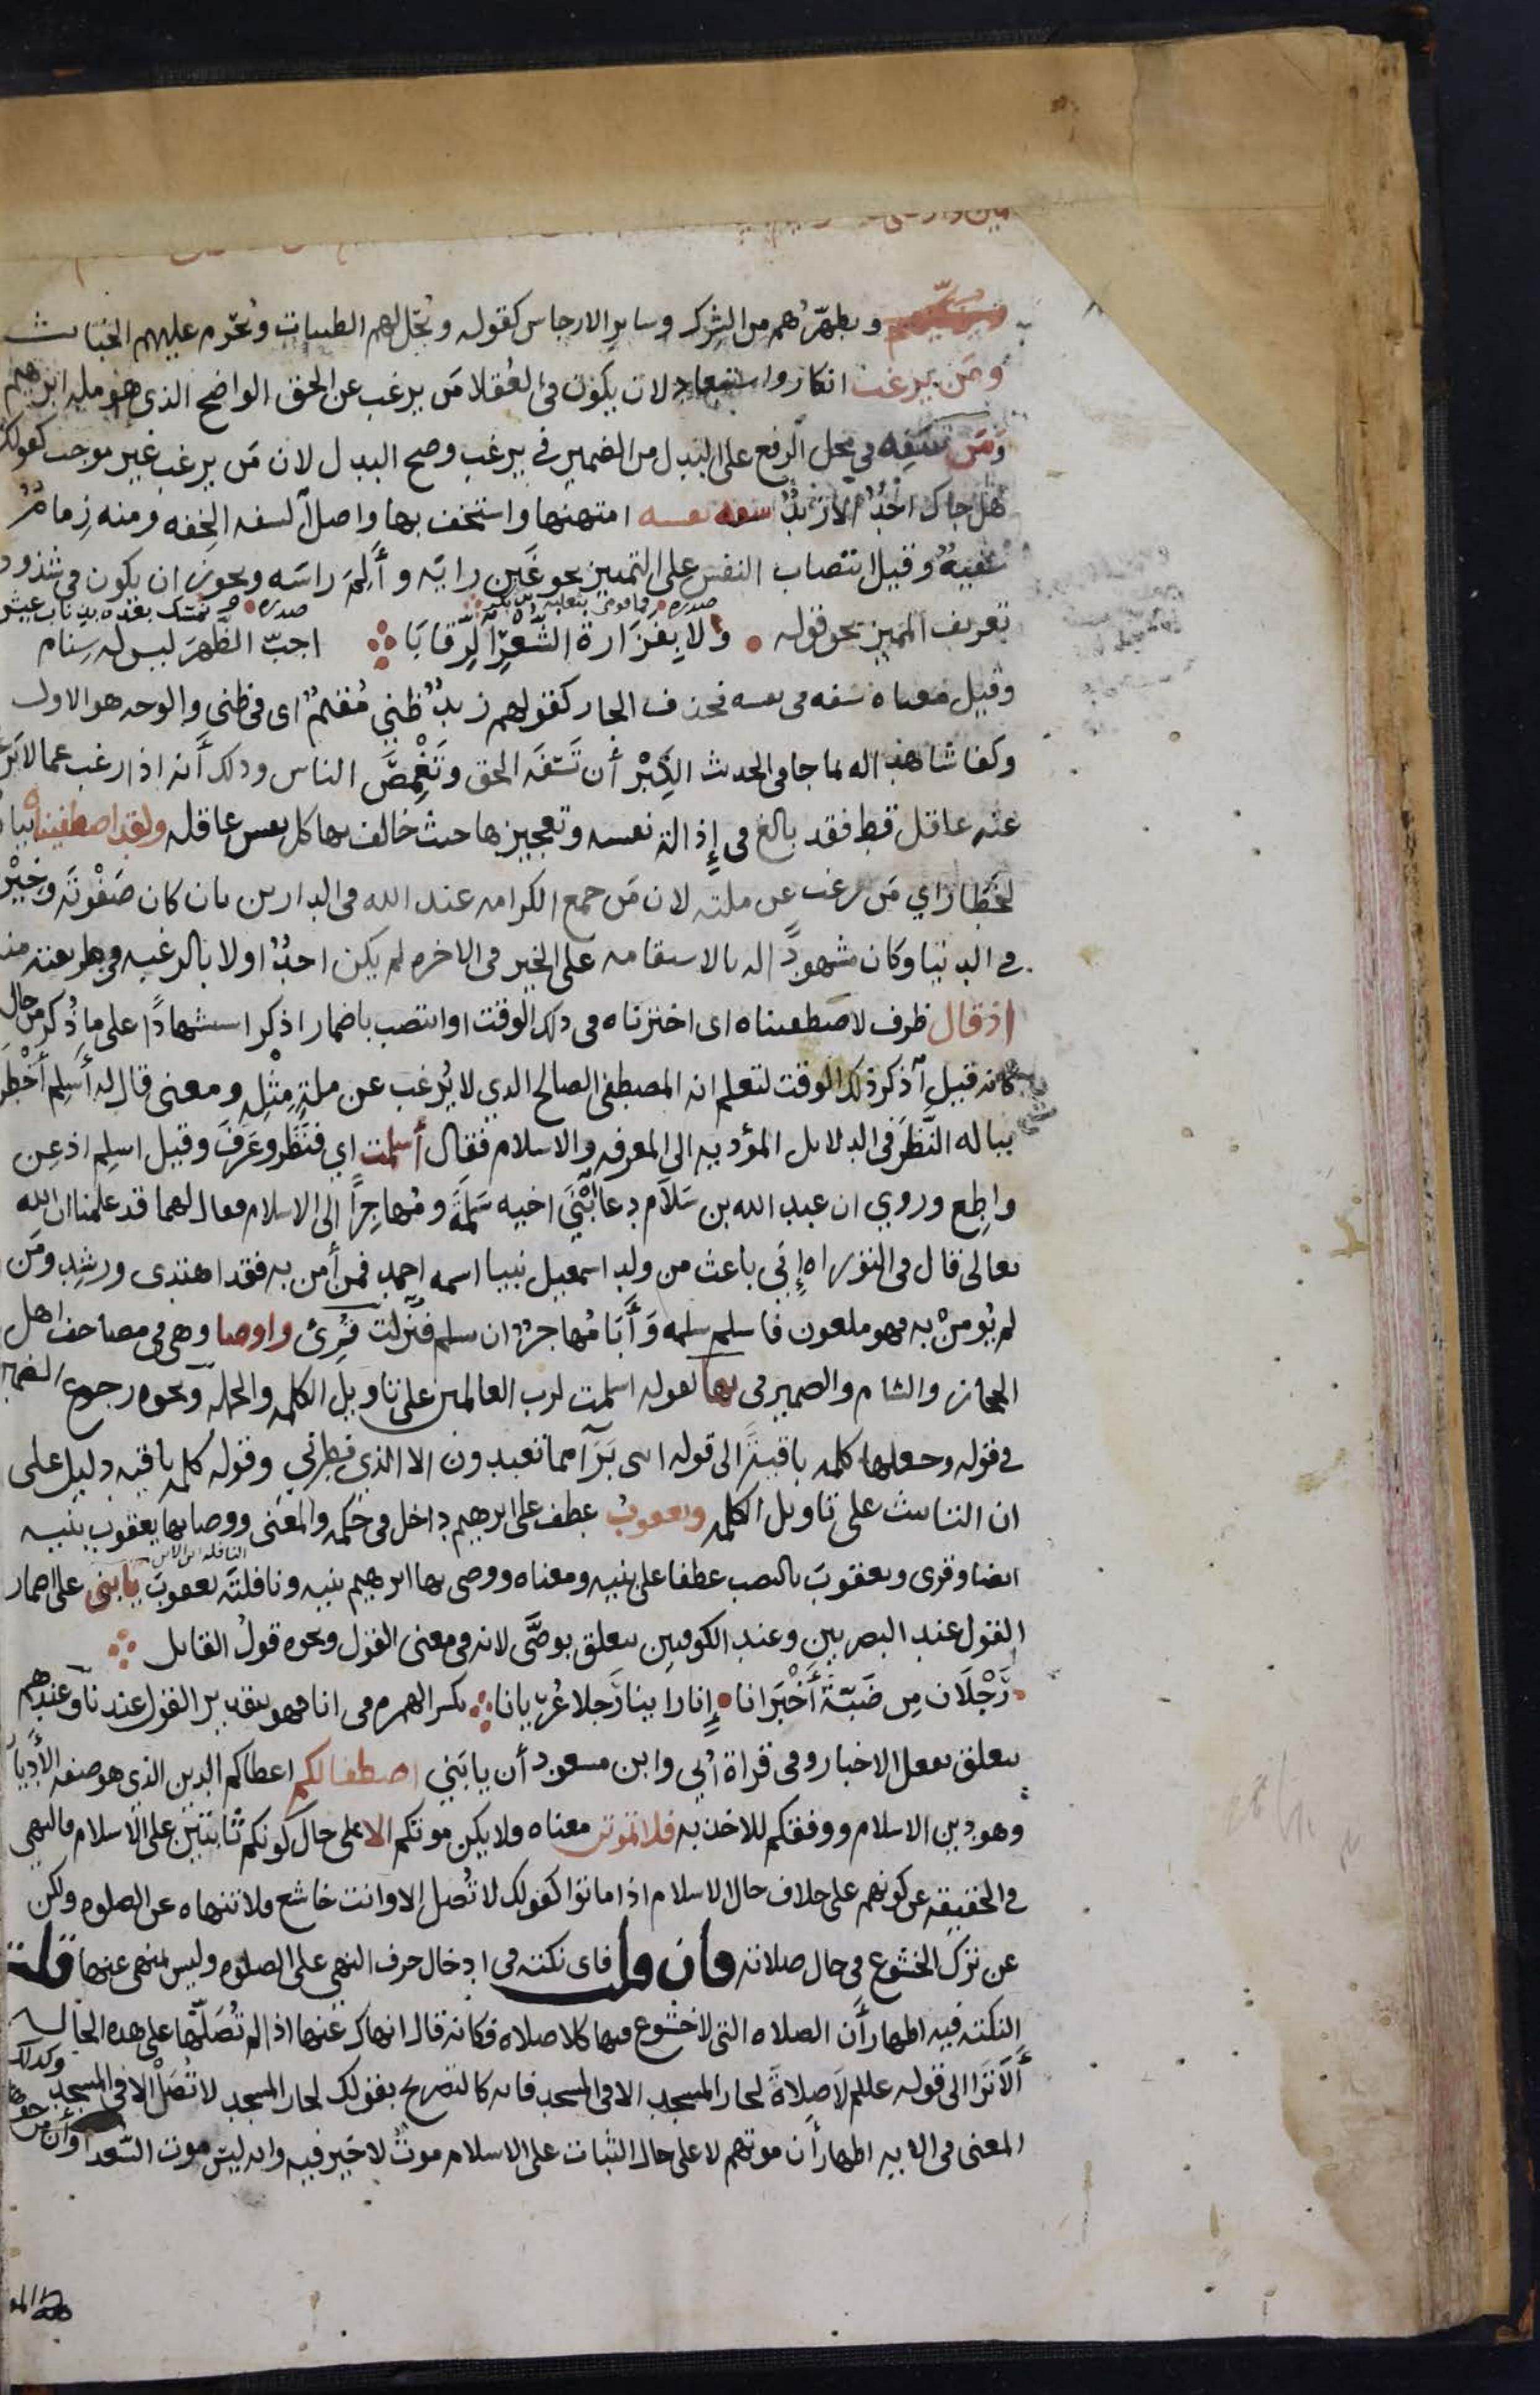 ويزكيهم ويطهرهم من الشرك وساير الارجاس كقوله ويحل لهم الطيبات ويحرم عليهم الخبايث
ومن يرغب انكار واستبعاد لان يكون في العقلا من يرغب عن الحق الواضح الذي هو مله ابرهيم
ومن سفه في محل الرفع على البدل من الضمير في يرغب وصح البدل لان من يرغب غير موجب كقولك
هل جاك احد الا زيد سفه نفسه امتهنها واستخف بها واصل السفه الخفه ومنه زمام
سفيه وقيل انتصاب النفس على التمييز نحو غبن رايه وألم راسه ويجوز ان يكون في شذوذ
صدره فما قومي بثعلبه بن بكر صدره ونمسك بعده بذناب عيش
تعريف المميز نحو قوله ولا بفزارة الشعر الرقابا اجب الظهر ليس له سنام
وقيل معناه سفه في نفسه فحذف الجار كقولهم زيد ظني مقيم اى في ظني والوجه هو الاول
وكفا شاهدا له ما جا في الحديث الكبر أن تسفه الحق وتغمص الناس وذلك أنه اذا رغب عما لا يرغب
عنه عاقل قط فقد بالغ في إذالة نفسه وتعجيزها حيث خالف بها كل نفس عاقله ولقد اصطفيناه بيان
لخطا راي من رغب عن ملته لان من جمع الكرامه عند الله في الدارين بان كان صفوته وخيرته
في الدنيا وكان مشهودا له بالاستقامه على الخير في الاخره لم يكن احد اولا بالرغبه في طريقته منه
اذ قال ظرف لاصطفيناه اى اخترناه في ذلك الوقت او انتصب باضمار اذكر استشهادا على ما ذكر من حاله
كانه قيل أذكر ذلك الوقت لتعلم انه المصطفى الصالح الذي لا يرغب عن ملة مثله ومعنى قال له أسلم أخطر
بباله النظر في الدلايل المؤديه الى المعرفه والاسلام فقال أسلمت اي فنظر وعرف وقيل اسلم اذعن
واطع وروي ان عبد الله بن سلام دعا ابنى اخيه سلمة ومهاجرا الى الاسلام فقال لهما قد علمتما ان الله
تعالى قال في التوراه إني باعث من ولد اسمعيل نبيا اسمه احمد فمن أمن به فقد اهتدى ورشد ومن
لم يومن به فهو ملعون فاسلم سلمه وأبا مهاجر ان يسلم فنزلت قرئ واوصا وهي في مصاحف اهل
الحجاز والشام والضمير في بها لقوله اسلمت لرب العالمين على تاويل الكلمه والجمله ونحوه رجوع الضمير
في قوله وجعلها كلمه باقية الى قوله انني برآ مما تعبدون الا الذي فطرني وقوله كلمه باقيه دليل على
ان التانيث على تاويل الكلمه ويعقوب عطف على ابرهيم داخل في حكمه والمعنى ووصا بها يعقوب بنيه
النافله ابن الابن
ايضا وقرى ويعقوب بالنصب عطفا على بنيه ومعناه ووصى بها ابرهيم بنيه ونافلته يعقوب يابني على اضمار
القول عند البصريين وعند الكوفيين يتعلق بوصى لانه في معنى القول ونحوه قول القايل
رجلان من ضبة أخبرانا إنا راينا رجلا عريانا بكسر الهمزه في انا فهو بتقدير القول عندنا وعندهم
يتعلق بفعل الاخبار وفي قراة أبي وابن مسعود أن يابني اصطفا لكم اعطاكم الدين الذي هو صفوه الأديان
وهو دين الاسلام ووفقكم للاخذ به فلا تموتن معناه ولا يكن موتكم الا على حال كونكم ثابتين على الاسلام فالنهي
في الحقيقه عن كونهم على خلاف حال الاسلام اذا ماتوا كقولك لا تصل الا وانت خاشع فلا تنهاه عن الصلوه ولكن
عن ترك الخشوع في حال صلاته فان قلت فاى نكته في ادخال حرف النهي على الصلوه وليس بمنهي عنها قلت
النكته فيه اظهار أن الصلاه التى لا خشوع فيها كلا صلاه فكانه قال انهاك عنها اذا لم تصلها على هذه الحاله
ألا ترا الى قوله عللم لا صلاة لجار المسجد الا في المسجد فانه كالتصريح بقولك لجار المسجد لا تصل الا في المسجد وكذلك
المعنى في الايه اظهار أن موتهم لا على حال الثبات على الاسلام موت لا خير فيه وانه ليس موت السعدا وأن من حق
هذا المو